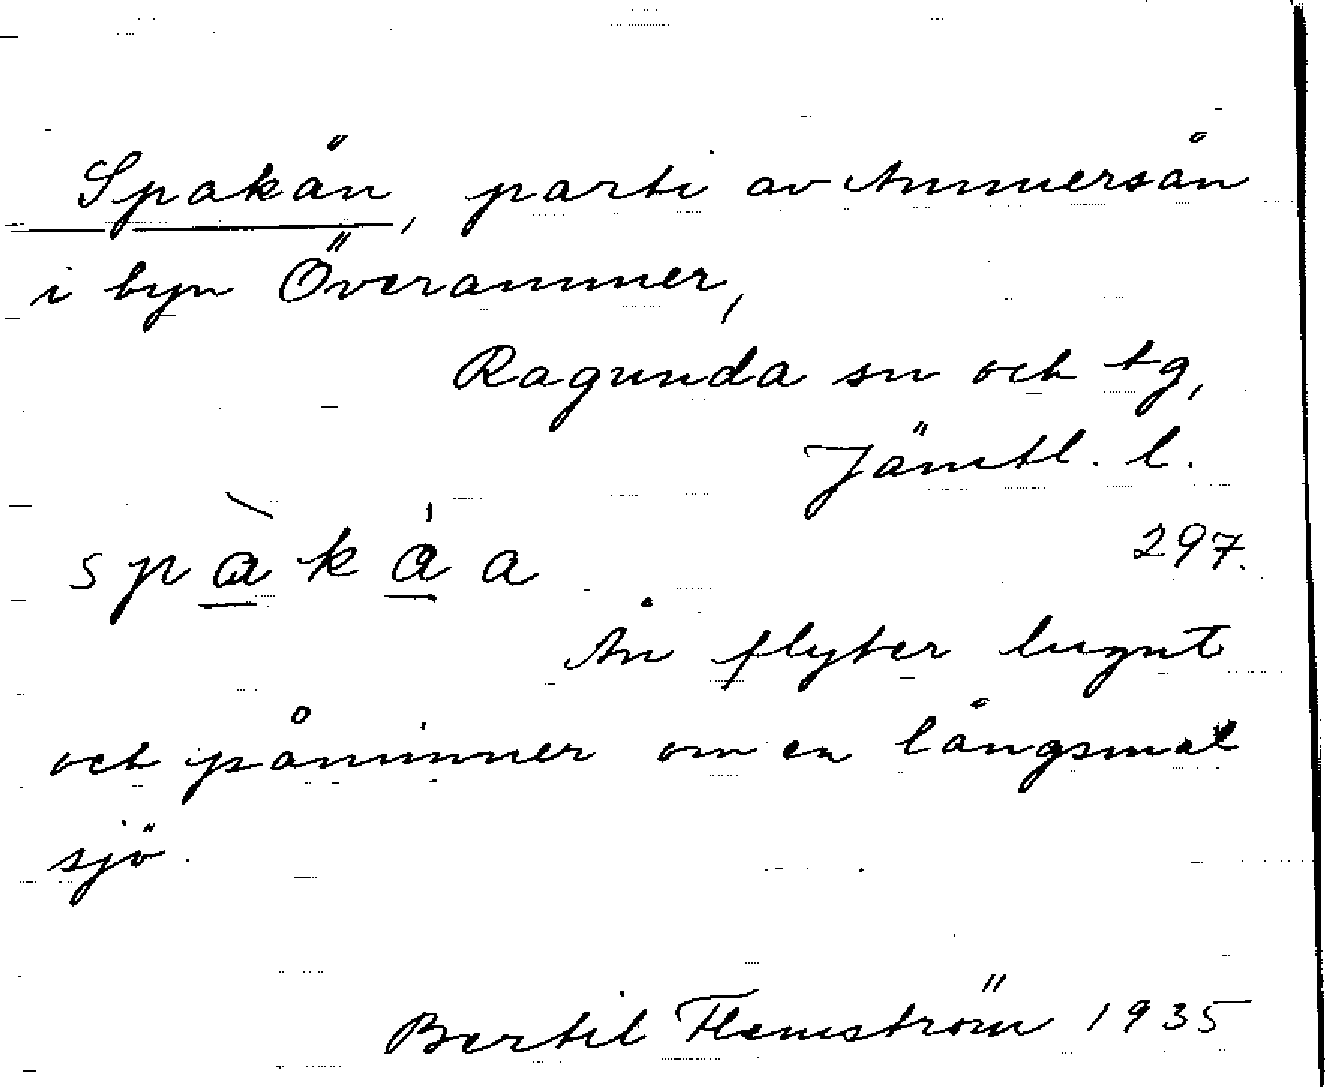 Spakån, parti av Ammersån
i byn Överammer,
Ragunda sn och tg,
Jämtl. l.
297.
spàkåa
Ån flyter lugnt
och påminner om en långsmal
sjö.
Bertil Flemström 1935